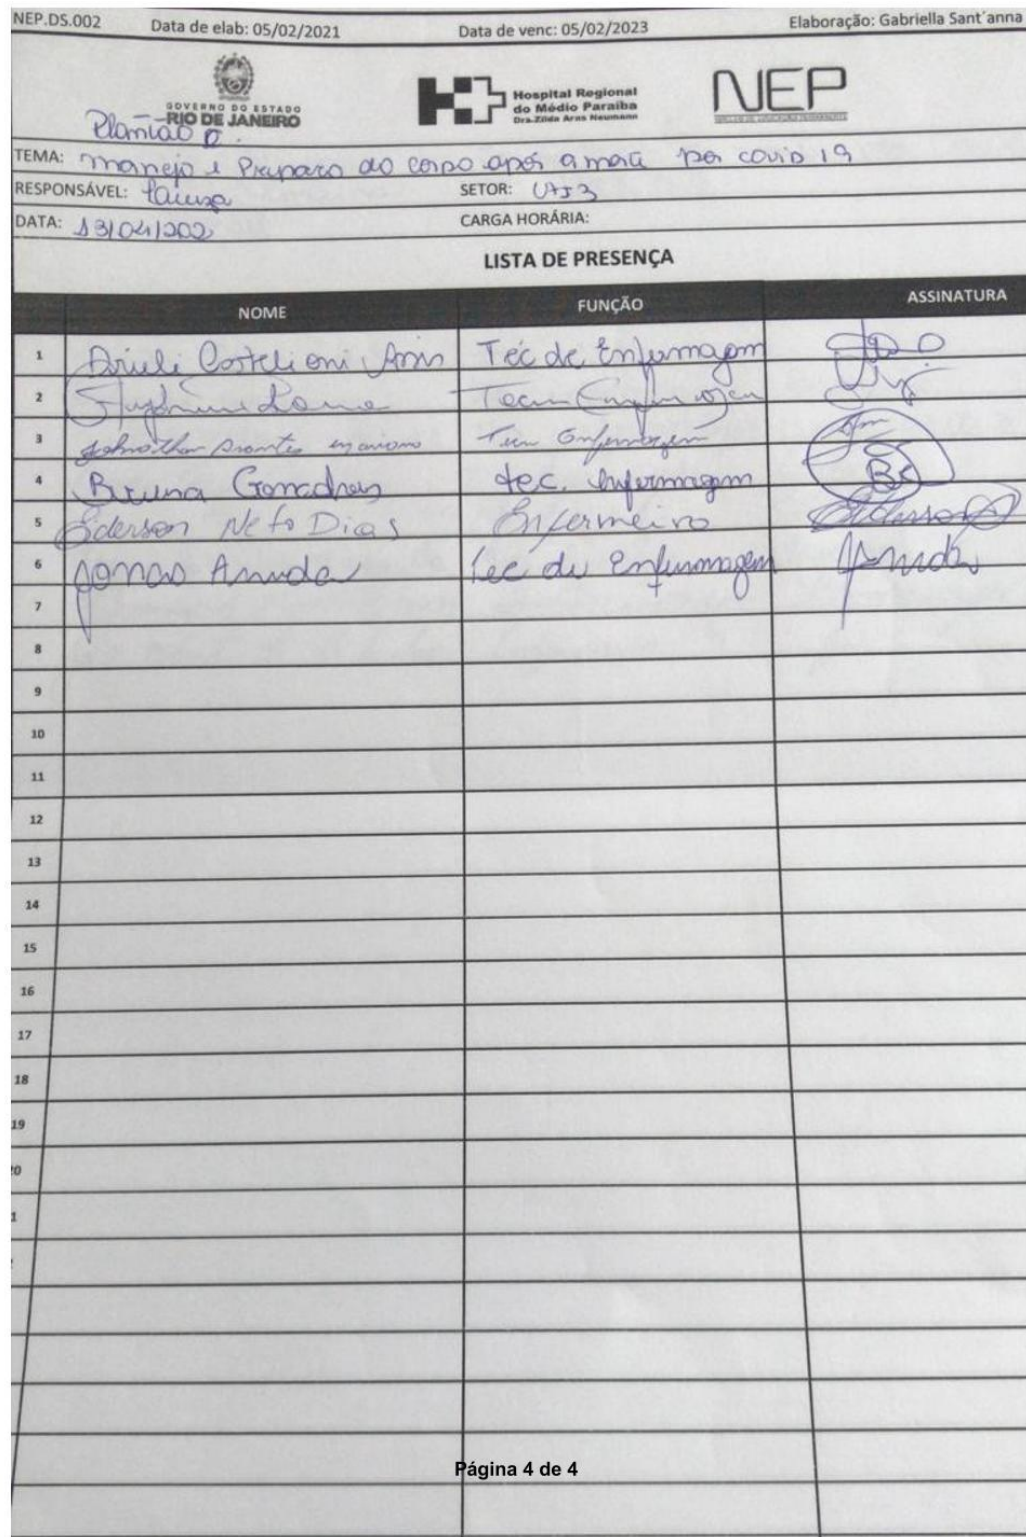 NEP.DS.002 Data de elab: 05/02/2021 Data de venc: 05/02/2023 Elaboração: Gabriella Sant´anna
GOVERNO DO ESTADO
RIO DE JANEIRO
Hospital Regional
do Médio Paraíba
Dra.Zilda Arns Neumann
NEP
Plantão D.
TEMA: manejo e Preparo do corpo após a morte por covid 19
RESPONSÁVEL:
SETOR: UTI 3
DATA: 13/04/202
CARGA HORÁRIA:
LISTA DE PRESENÇA
NOME FUNÇÃO ASSINATURA
1 Téc de Enfermagem
2
3 Enfermagem
4 Bruna tec. enfermagem BS
5 Ederson Neto Dias Enfermeiro Ederson
6 Jonas Arruda tec de Enfermagem Arruda
7
8
9
10
11
12
13
14
15
16
17
18
19
20
1
Página 4 de 4